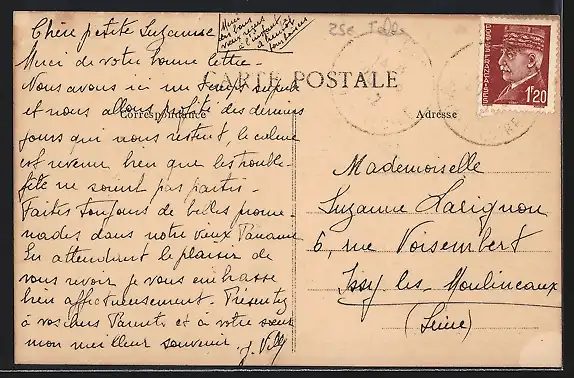 Chère petite Suzanne
Merci de votre bonne lettre -
Nous avons ici un temps superbe
et nous allons profité des derniers
jours qui nous restent, le calme
est revenu bien que les trouble-
fête ne soient pas partis -
Faites toujours de belles prome-
nades dans notre vieux Paname
En attendant le plaisir de
vous revoir je vous embrasse
bien affectueusement. Présentez
à vos chers Parents et à votre sœur
mon meilleur souvenir.
J. Villy
Merci
des bons
vœux reçus
à l'instant
à bientôt
CARTE POSTALE
Correspondance
Adresse
POSTES FRANÇAISES
1f20
Mademoiselle
Suzanne Lavignon
6, rue Voisembert
Issy-les-Moulineaux
(Seine)